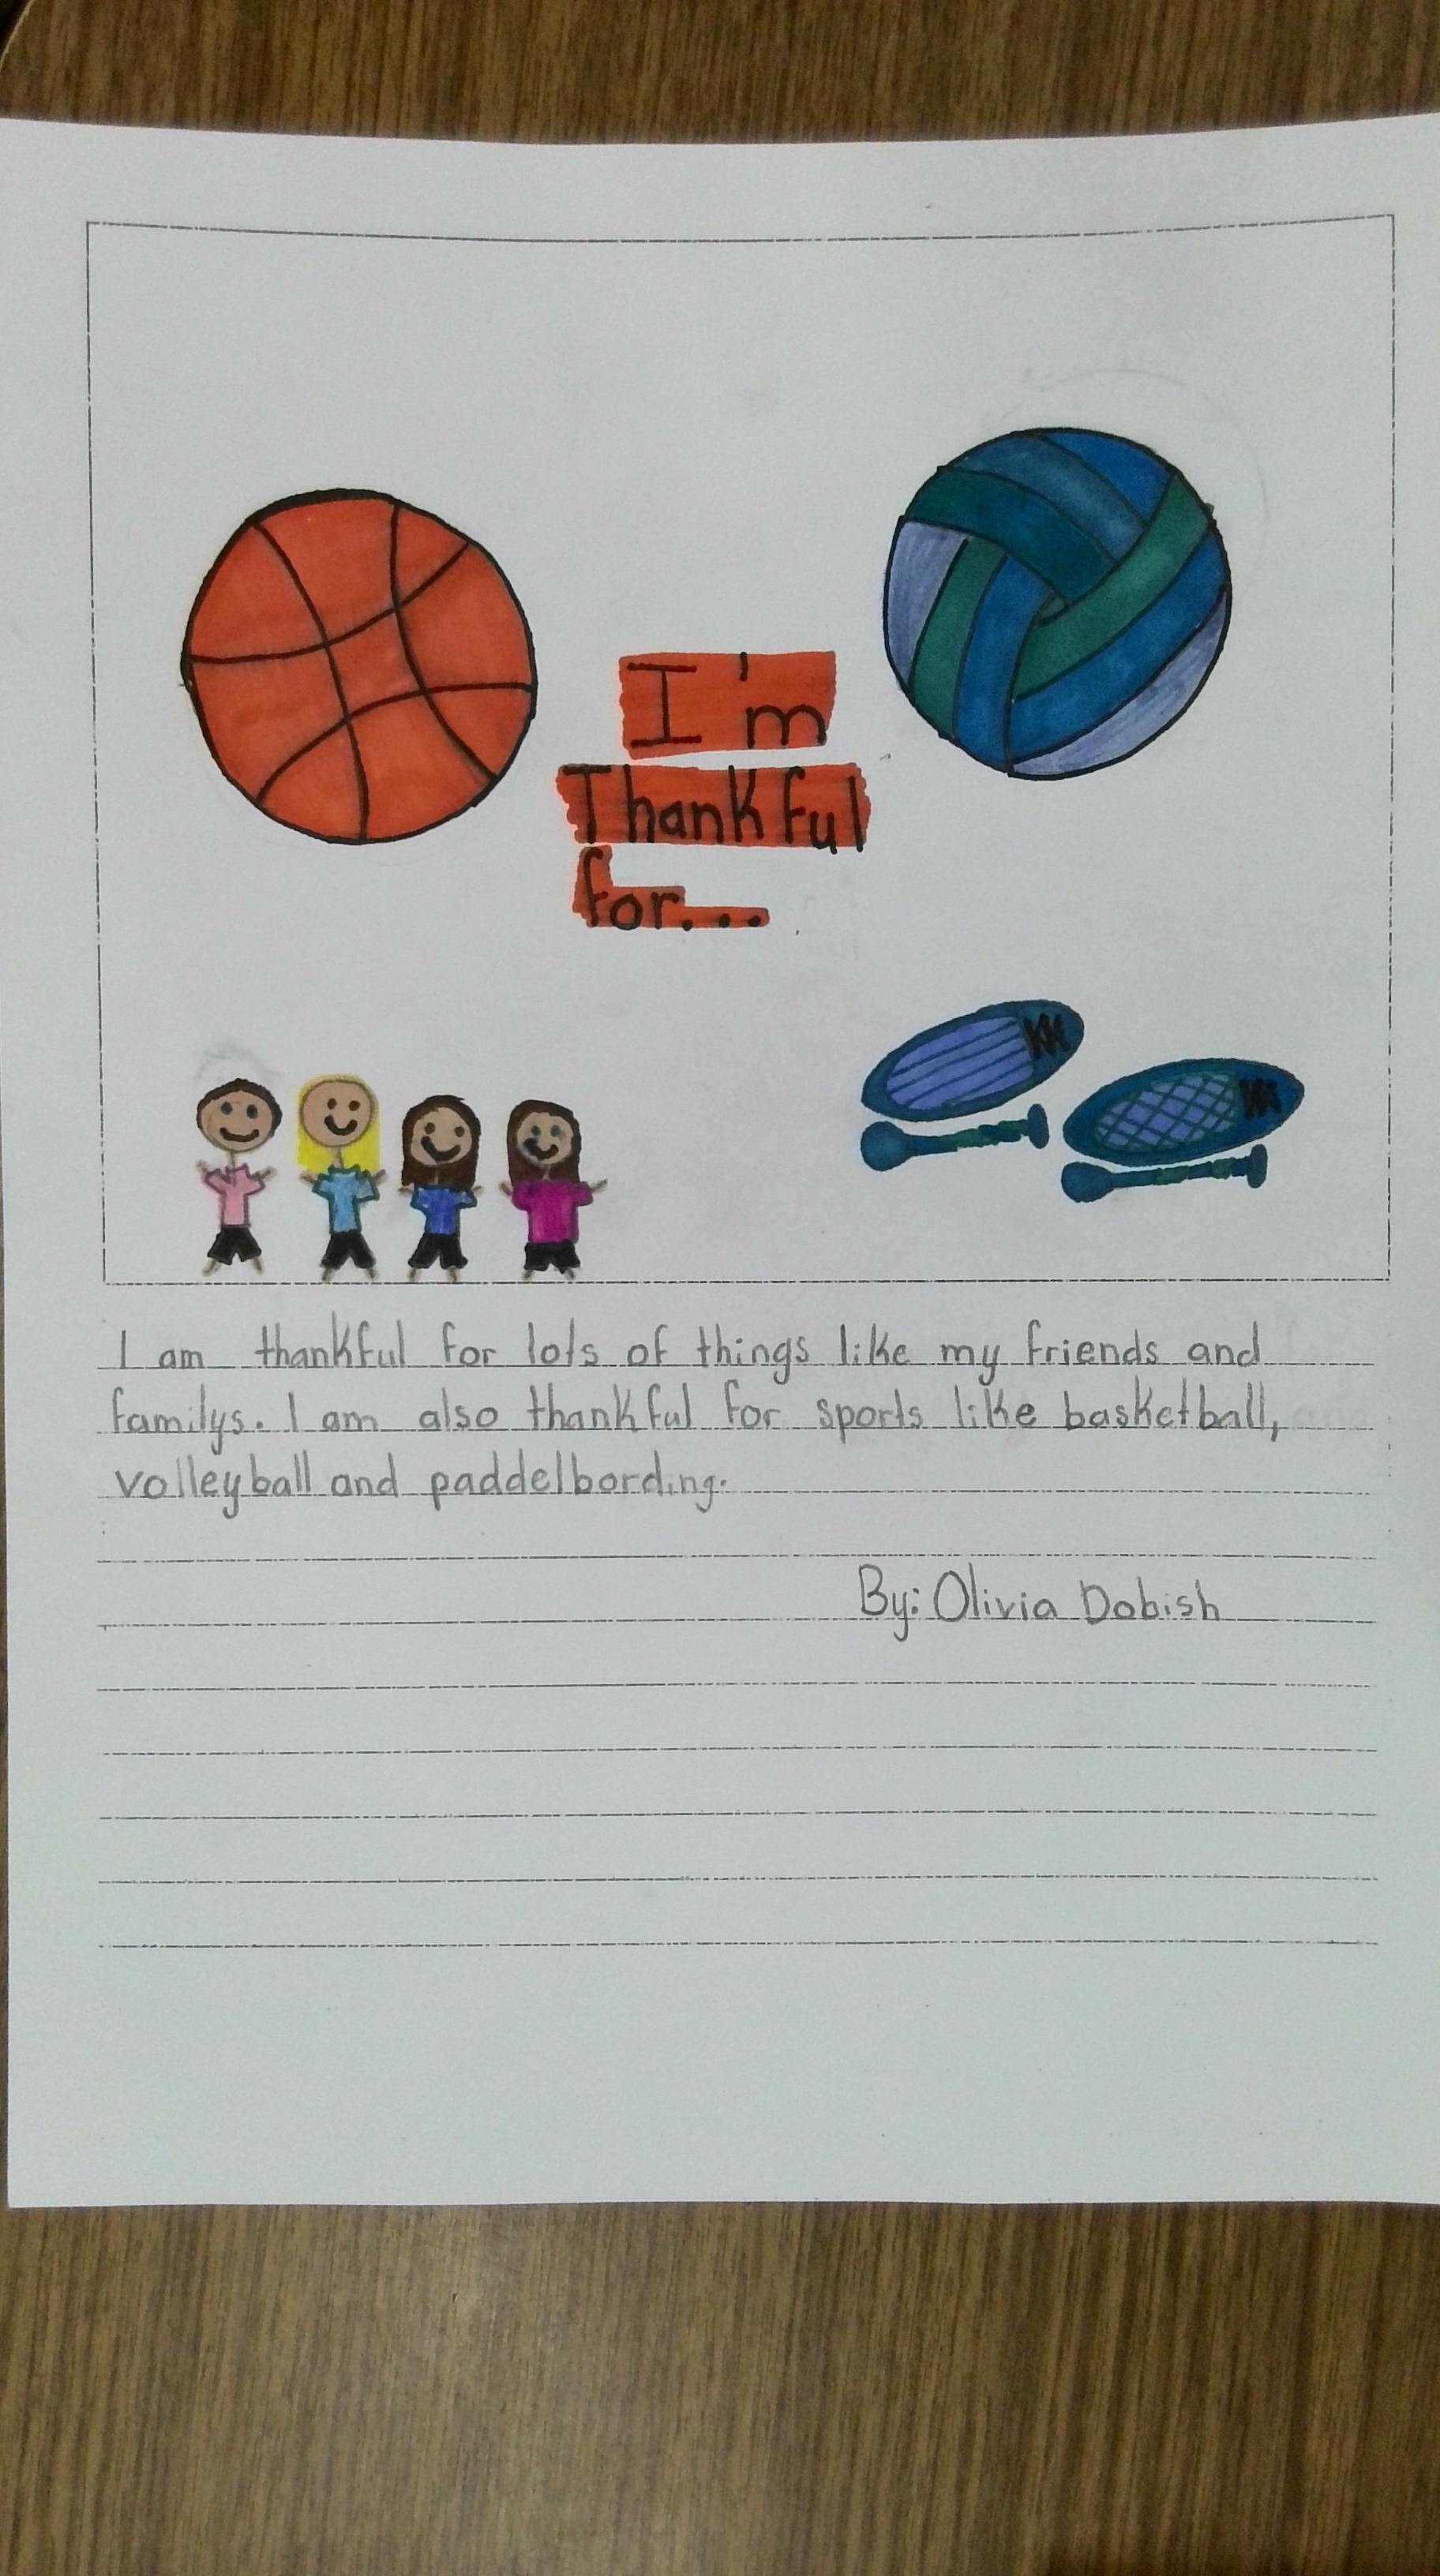 I'm
Thankful
for...
I am thankful for lots of things like my friends and
familys. I am also thankful for sports like basketball,
volleyball and paddelbording.
By: Olivia Dobish